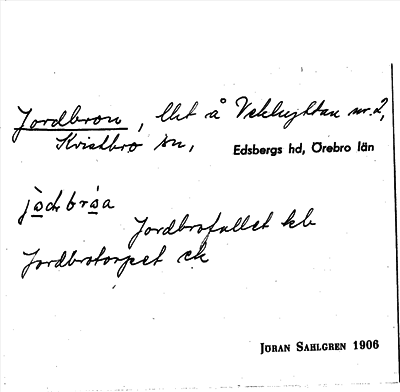 Jordbron, llet å Vekhyttan nr. 2,
Kvistbro sn, Edsbergs hd, Örebro län
Jordbrofallet hb
Jordbrotorpet ek
JÖRAN SAHLGREN 1906